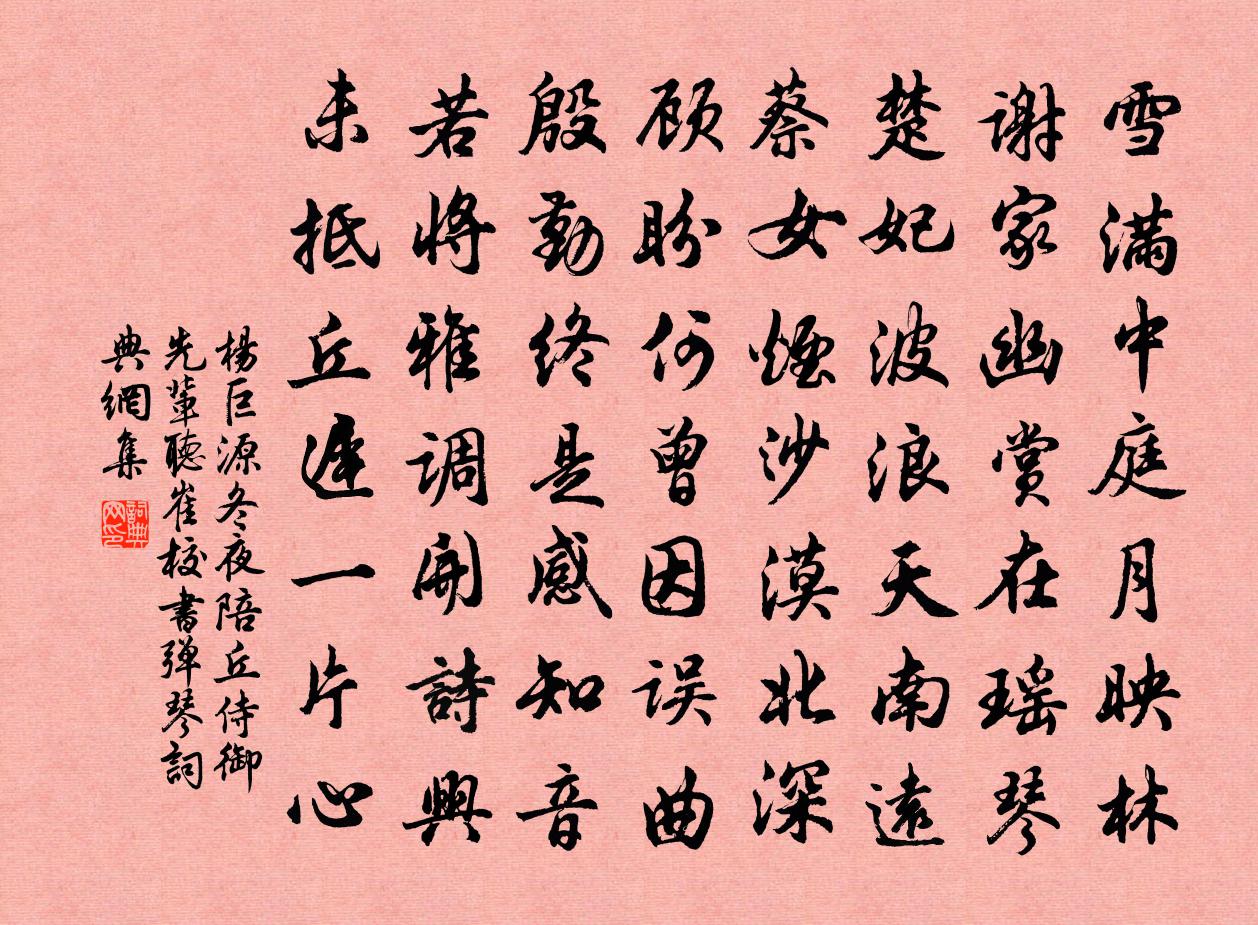 雪满中庭月映林
谢家幽赏在瑶琴
楚妃波浪天南远
蔡女烟沙漠北深
顾盼何曾因误曲
殷勤终是感知音
若将雅调开詩興
未抵丘遲一片心
楊巨源冬夜陪丘侍御
先輩聽崔校書弹琴詞
典網集
詞典网印